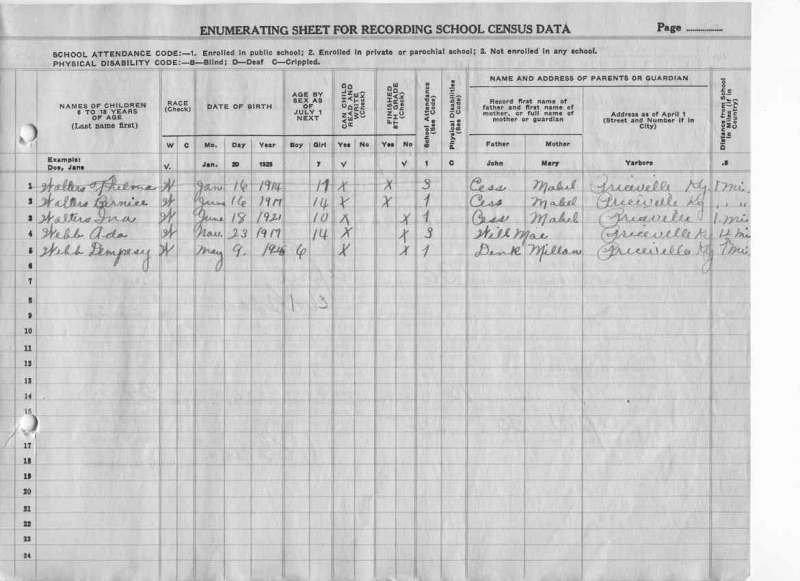 ENUMERATING SHEET FOR RECORDING SCHOOL CENSUS DATA Page
SCHOOL ATTENDANCE CODE:—1. Enrolled in public school; 2. Enrolled in private or parochial school; 3. Not enrolled in any school.
PHYSICAL DISABILITY CODE:—B—Blind; D—Deaf C—Crippled.
NAMES OF CHILDREN 6 TO 18 YEARS OF AGE (Last name first)
RACE (Check)
W C
DATE OF BIRTH
Mo. Day Year
AGE BY SEX AS OF JULY 1 NEXT
Boy Girl
CAN CHILD READ AND WRITE (Check)
Yes No
FINISHED 8TH GRADE (Check)
Yes No
School Attendance (See Code)
Physical Disabilities (See Code)
NAME AND ADDRESS OF PARENTS OR GUARDIAN
Record first name of father and first name of mother, or full name of mother or guardian
Father Mother
Address as of April 1 (Street and Number if in City)
Distance from School in Miles (if in Country)
Example: Doe, Jane V. Jan. 20 1925 7 V V 1 C John Mary Yarboro .5
1 Walters Thelma W Jan 16 1914 17 X X 3 Cess Mabel Priceville Ky 1 Mi.
2 Walters Bernice W June 16 1917 14 X X 1 Cess Mabel Priceville Ky " "
3 Walters Ina W June 18 1921 10 X X 1 Cess Mabel Priceville 1 mi
4 Webb Ada W Nov. 23 1917 14 X X 3 Will Mae Priceville Ky mi
5 Webb Dempesy W May 9. 6 X X 1 Denk Priceville Ky 1 mi.
6
7
8
9
10
11
12
13
14
15
17
18
19
20
21
22
23
24